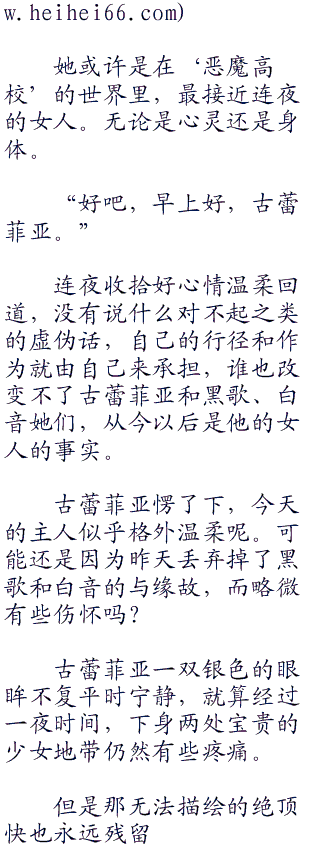 w.heihei66.com)
她或许是在‘恶魔高
校’的世界里，最接近连夜
的女人。无论是心灵还是身
体。
“好吧，早上好，古蕾
菲亚。”
连夜收拾好心情温柔回
道，没有说什么对不起之类
的虚伪话，自己的行径和作
为就由自己来承担，谁也改
变不了古蕾菲亚和黑歌、白
音她们，从今以后是他的女
人的事实。
古蕾菲亚愣了下，今天
的主人似乎格外温柔呢。可
能还是因为昨天丢弃掉了黑
歌和白音的与缘故，而略微
有些伤怀吗？
古蕾菲亚一双银色的眼
眸不复平时宁静，就算经过
一夜时间，下身两处宝贵的
少女地带仍然有些疼痛。
但是那无法描绘的绝顶
快也永远残留